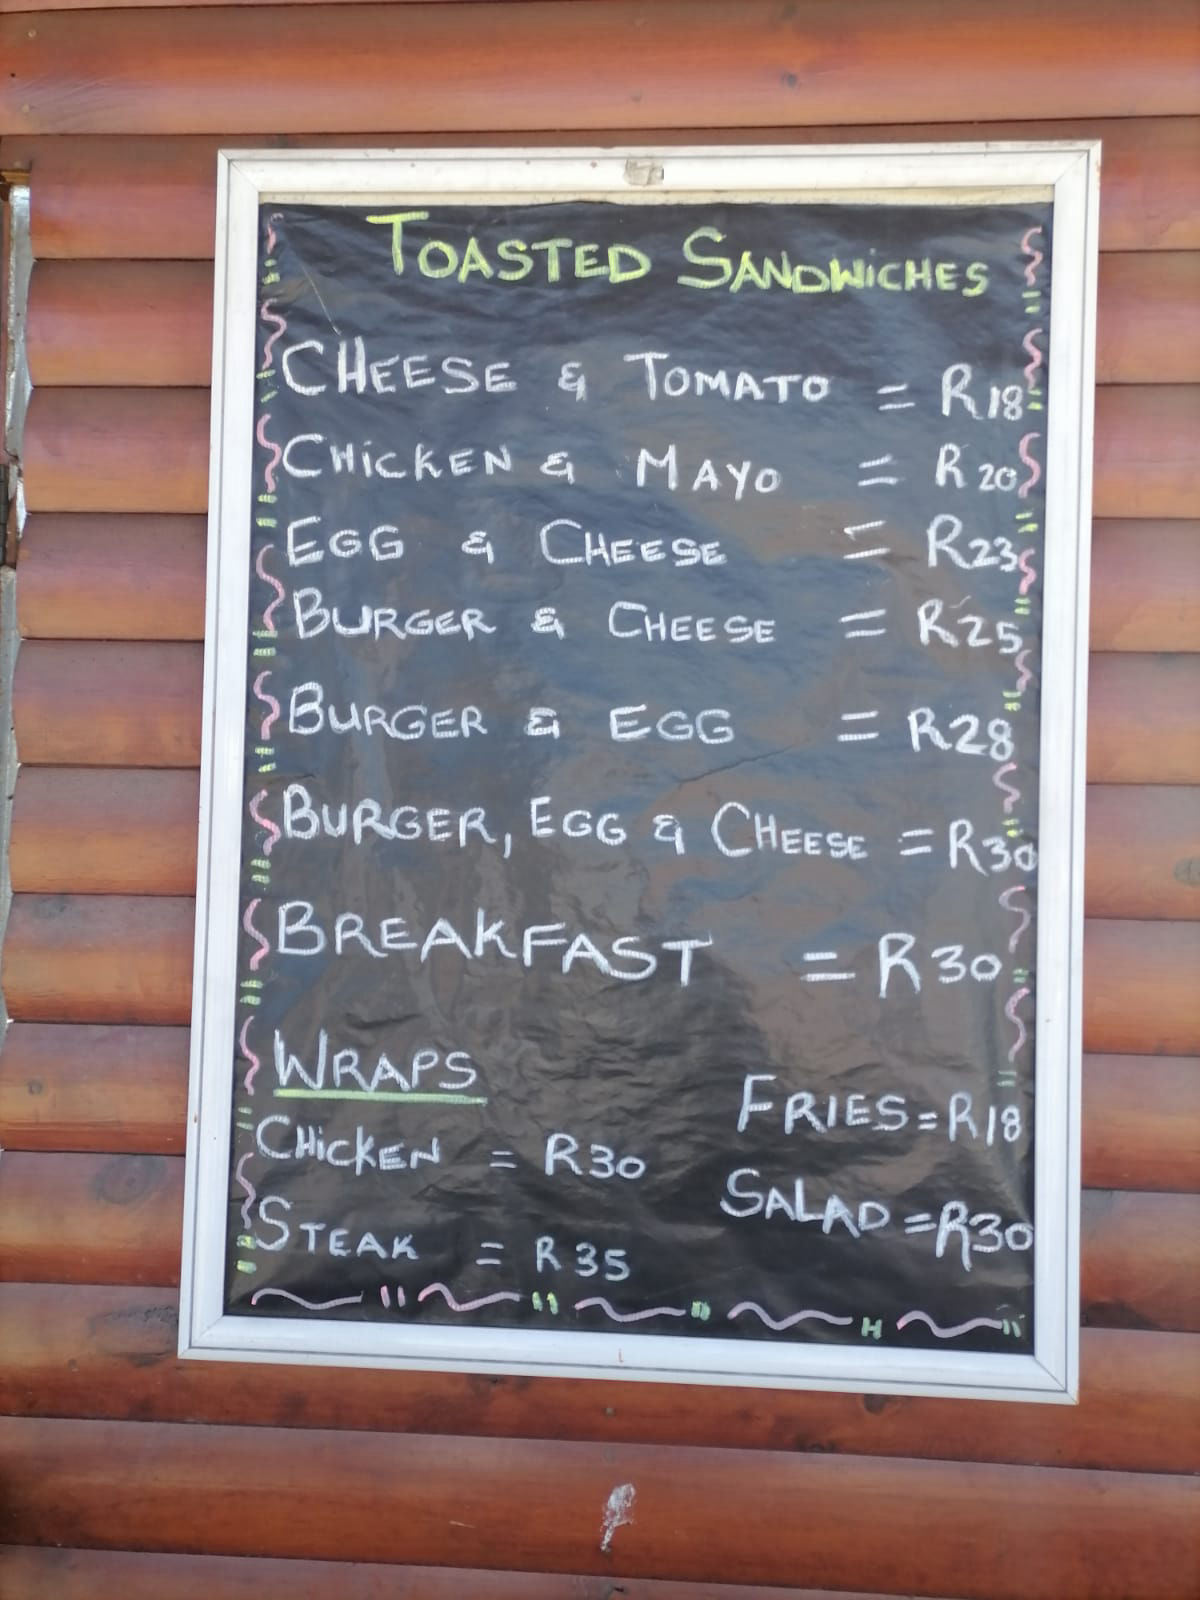 TOASTED SANDWiCHES
CHEESE & TOMATO = R18
CHiCKEN & MAYO = R20
EGG & CHEESE = R23
BURGER & CHEESE = R25
BURGER & EGG = R28
BURGER, EGG & CHEESE = R30
BREAKFAST = R30
WRAPS
CHiCKEN = R30
STEAK = R35
FRIES = R18
SALAD = R30